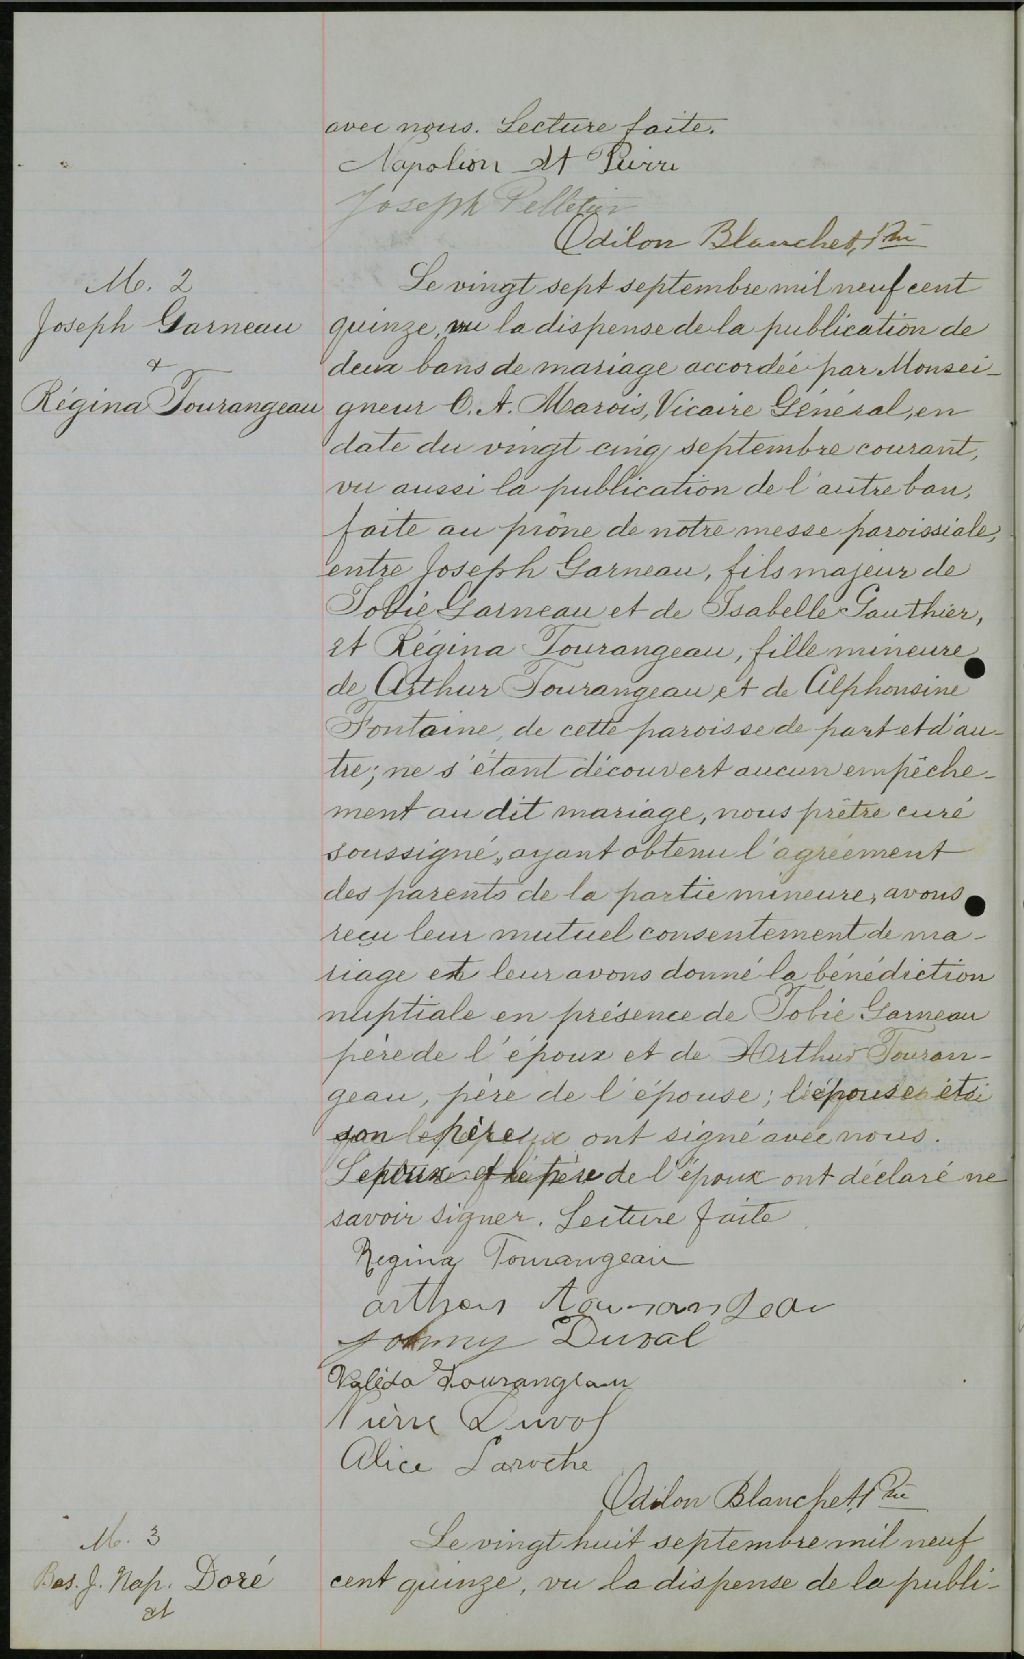 avec nous. Lecture faite.
Napolion St Pierre
Joseph Pelletier
Odilon Blanchet, Ptre
M. 2
Joseph Garneau
&
Régina Tourangeau
Le vingt sept septembre mil neuf cent
quinze, vu la dispense de la publication de
deux bans de mariage accordée par Monsei-
gneur C. A. Marois, Vicaire Général, en
date du vingt cinq septembre courant,
vu aussi la publication de l'autre ban,
faite au prône de notre messe paroissiale,
entre Joseph Garneau, fils majeur de
Tobie Garneau et de Isabelle Gauthier,
et Régina Tourangeau, fille mineure
de Arthur Tourangeau, et de Alphonsine
Fontaine, de cette paroisse de part et d'au-
tre; ne s'étant découvert aucun empêche-
ment au dit mariage, nous prêtre curé
soussigné, ayant obtenu l'agréement
des parents de la partie mineure, avons
reçu leur mutuel consentement de ma-
riage et leur avons donné la bénédiction
nuptiale en présence de Tobie Garneau
père de l'époux et de Arthur Touran-
geau, père de l'épouse; l'épouse et
son père ont signé avec nous.
L'époux et le père de l'époux ont déclaré ne
savoir signer. Lecture faite
Regina Tourangeau
arthur Tourangeau
Johnny Duval
Valéda Tourangeau
Pierre Duval
Alice Laroche
Odilon Blanchet, Ptre
M. 3
Bas. J. Nap. Doré
et
Le vingt huit septembre mil neuf
cent quinze, vu la dispense de la publi-